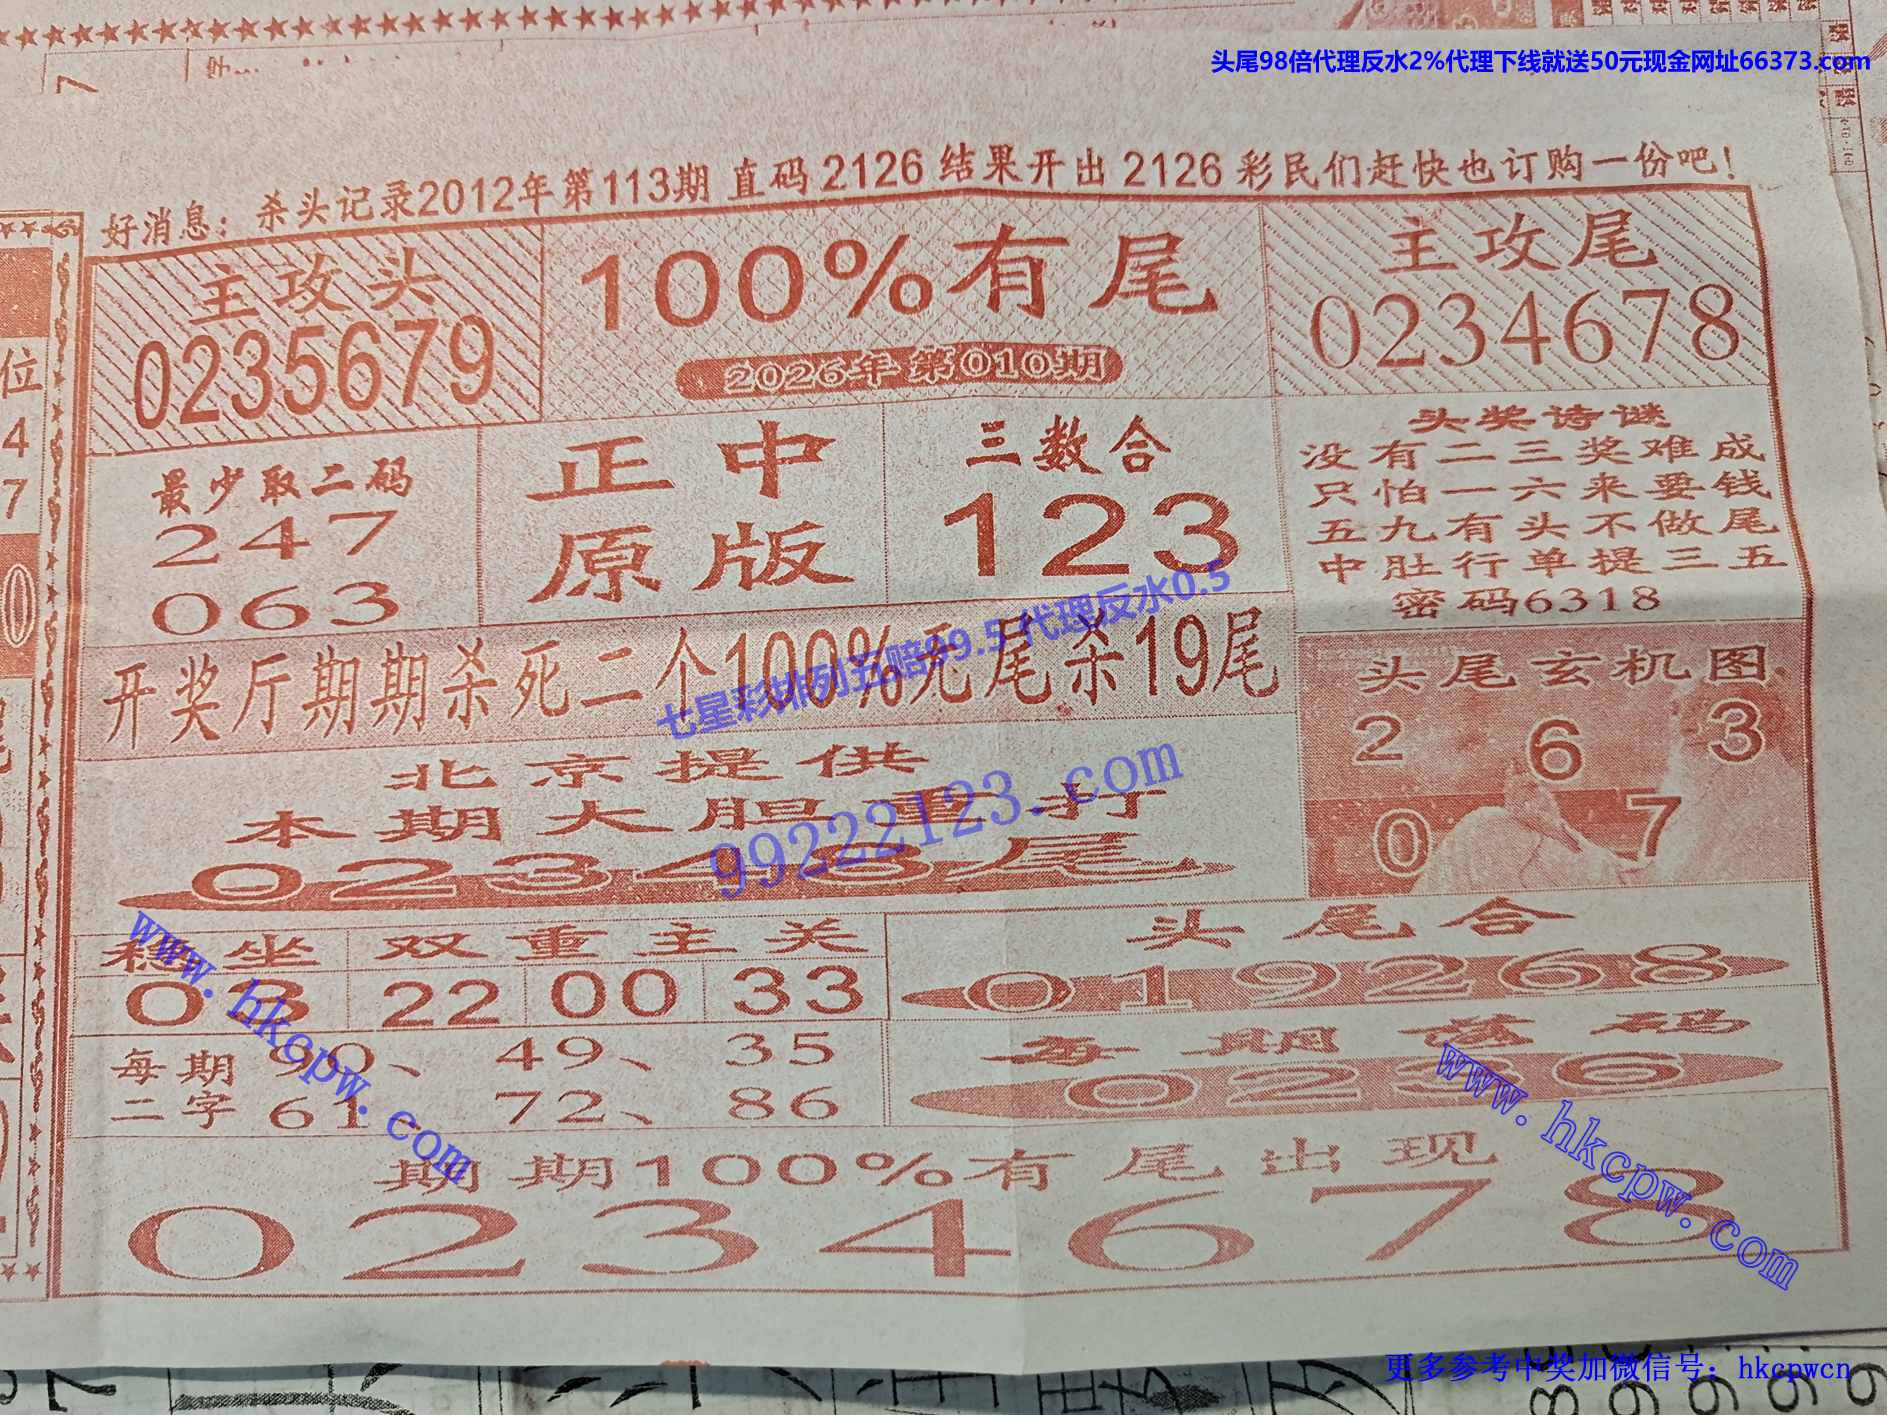 头尾98倍代理反水2%代理下线就送50元现金网址66373.com
好消息：杀头记录2012年第113期 直码 2126 结果开出 2126 彩民们赶快也订购一份吧！
主攻头
0235679
100%有尾
2026年 第010期
主攻尾
0234678
最少取二码
247
063
正中
原版
三数合
123
头奖诗谜
没有二三奖难成
只怕一六来要钱
五九有头不做尾
中肚行单提三五
密码6318
开奖厅期期杀死二个100%无尾杀19尾
七星彩排列五赔99.5 代理反水0.5
头尾玄机图
2 6 3
0 7
北京提供
本期大胆重打
02348尾
99222123.com
稳坐 双重主关
03 22 00 33
头尾合
019268
每期
二字
90、 49、 35
61、 72、 86
每期落码
0236
www.hkcpw.com
www.hkcpw.com
期期100%有尾出现
0234678
更多参考中奖加微信号：hkcpwcn